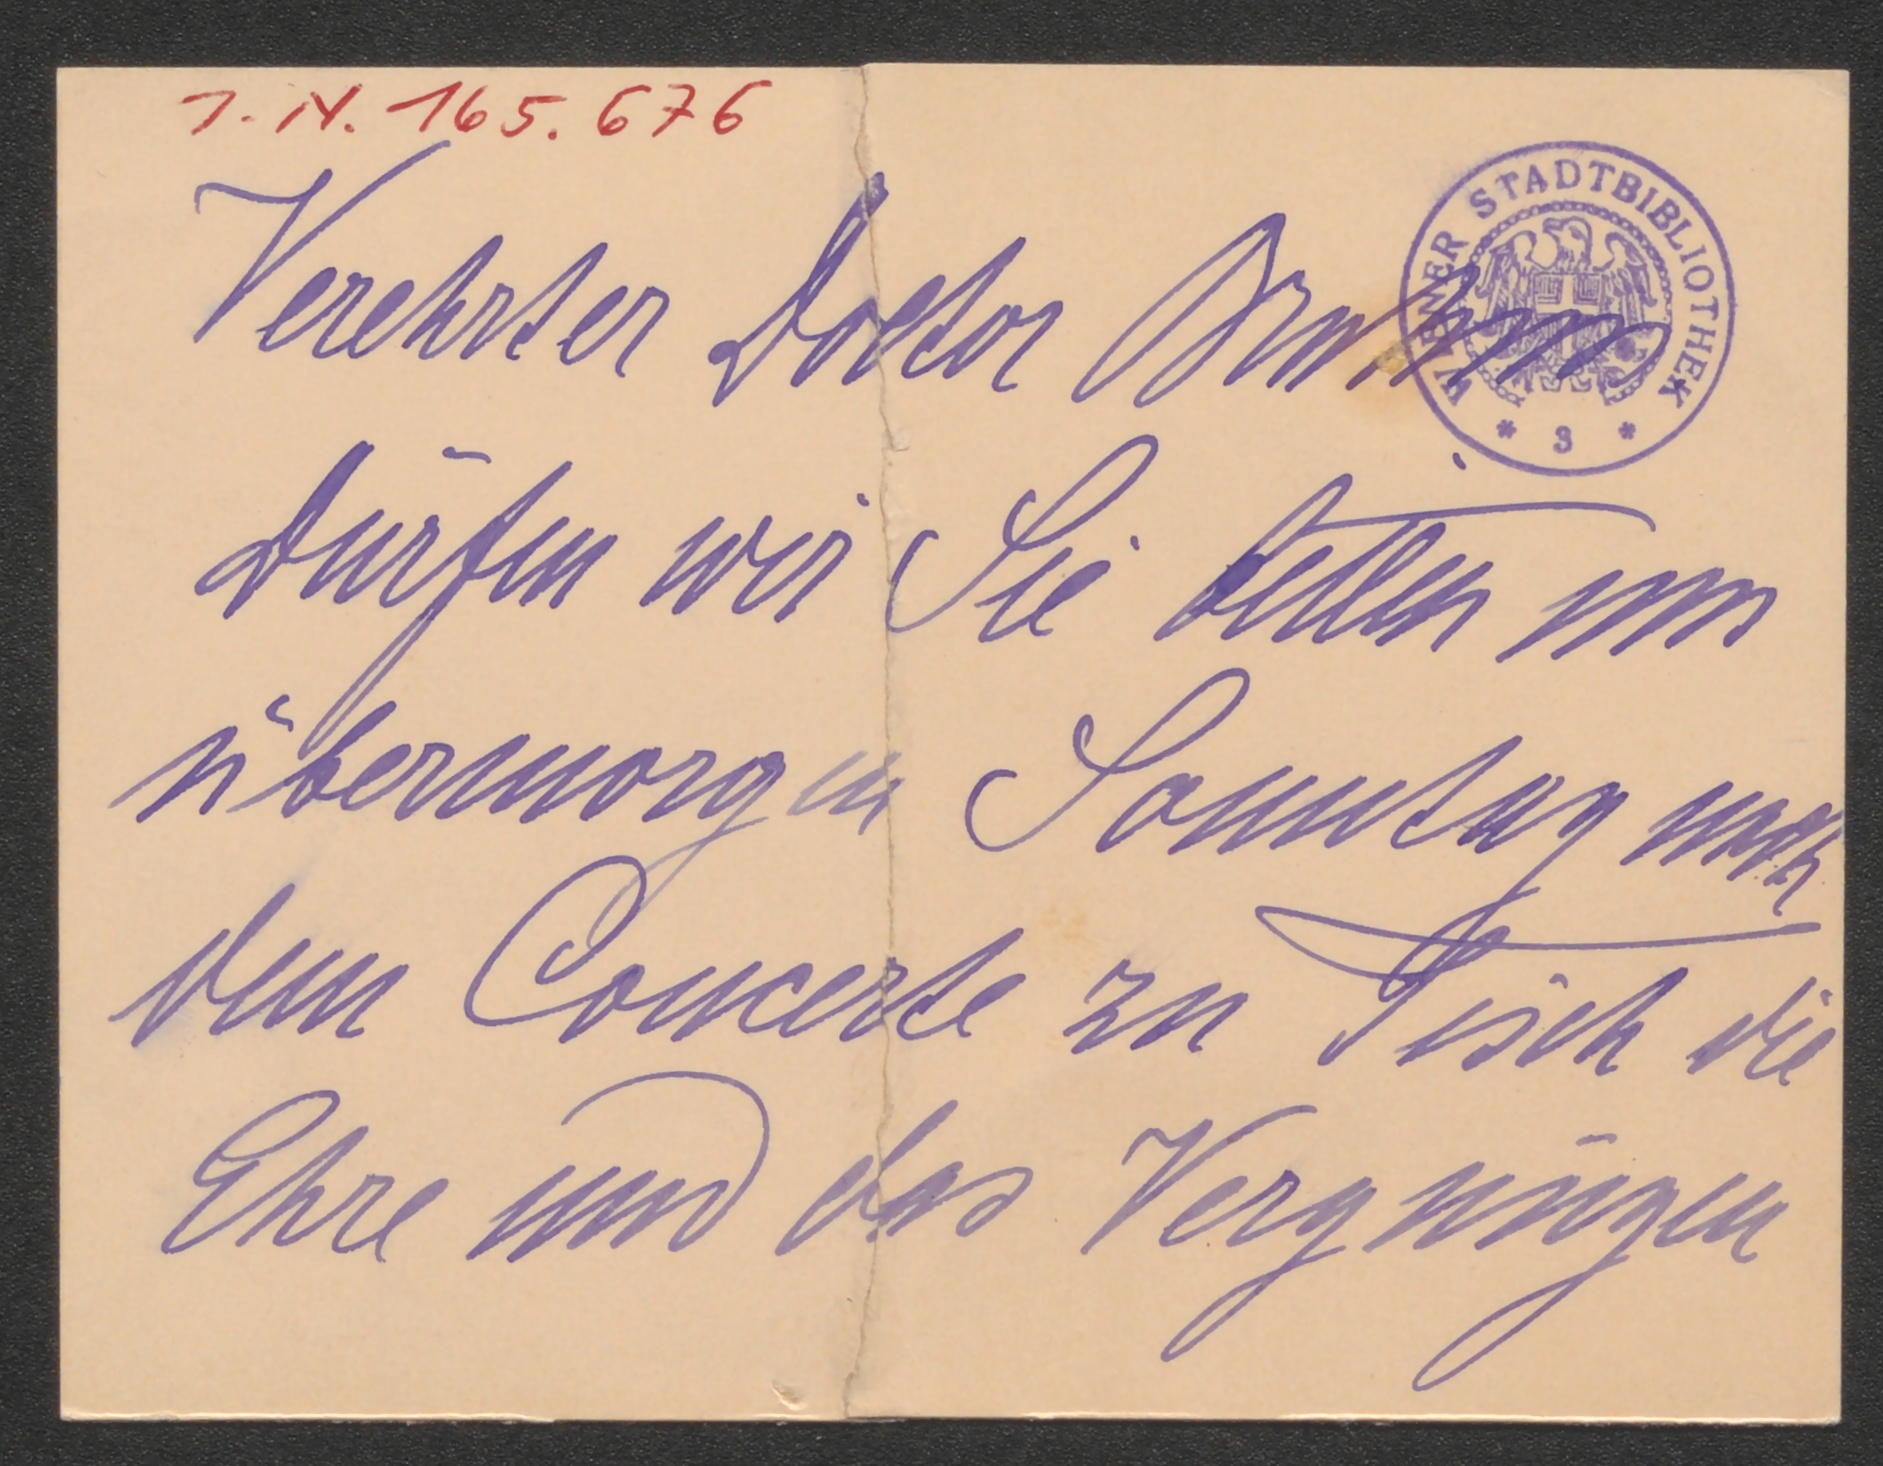 J. N. 165.676
WIENER STADTBIBLIOTHEK
* 3 *
Verehrter Doctor Brahms
Dürfen wir Sie bitten uns
übermorgen Sonntag nach
dem Concerte zu Tisch die
Ehre und das Vergnügen